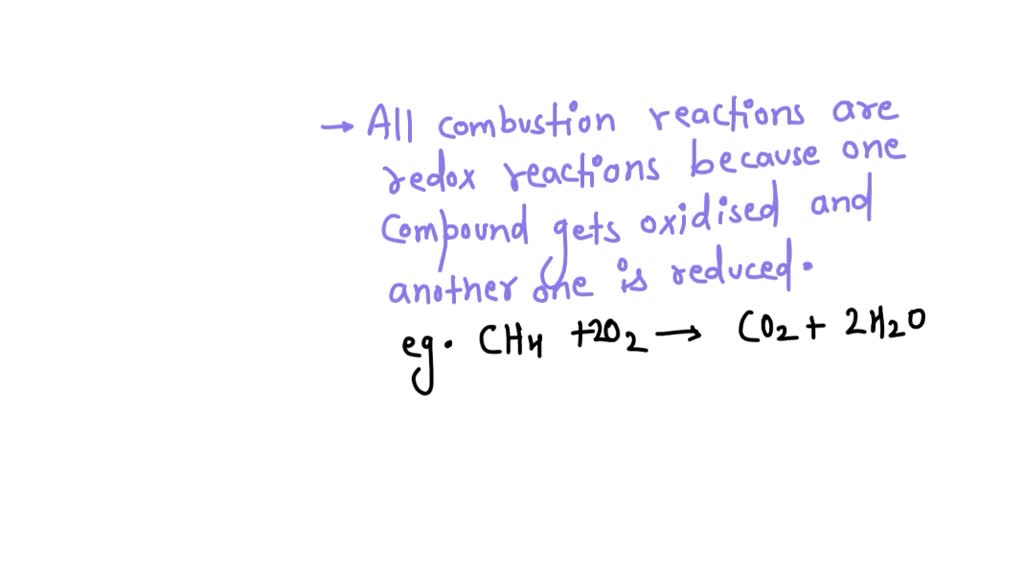 → All combustion reactions are
redox reactions because one
compound gets oxidised and
another one is reduced.
eg. CH4 +2O2 → CO2 + 2H2O